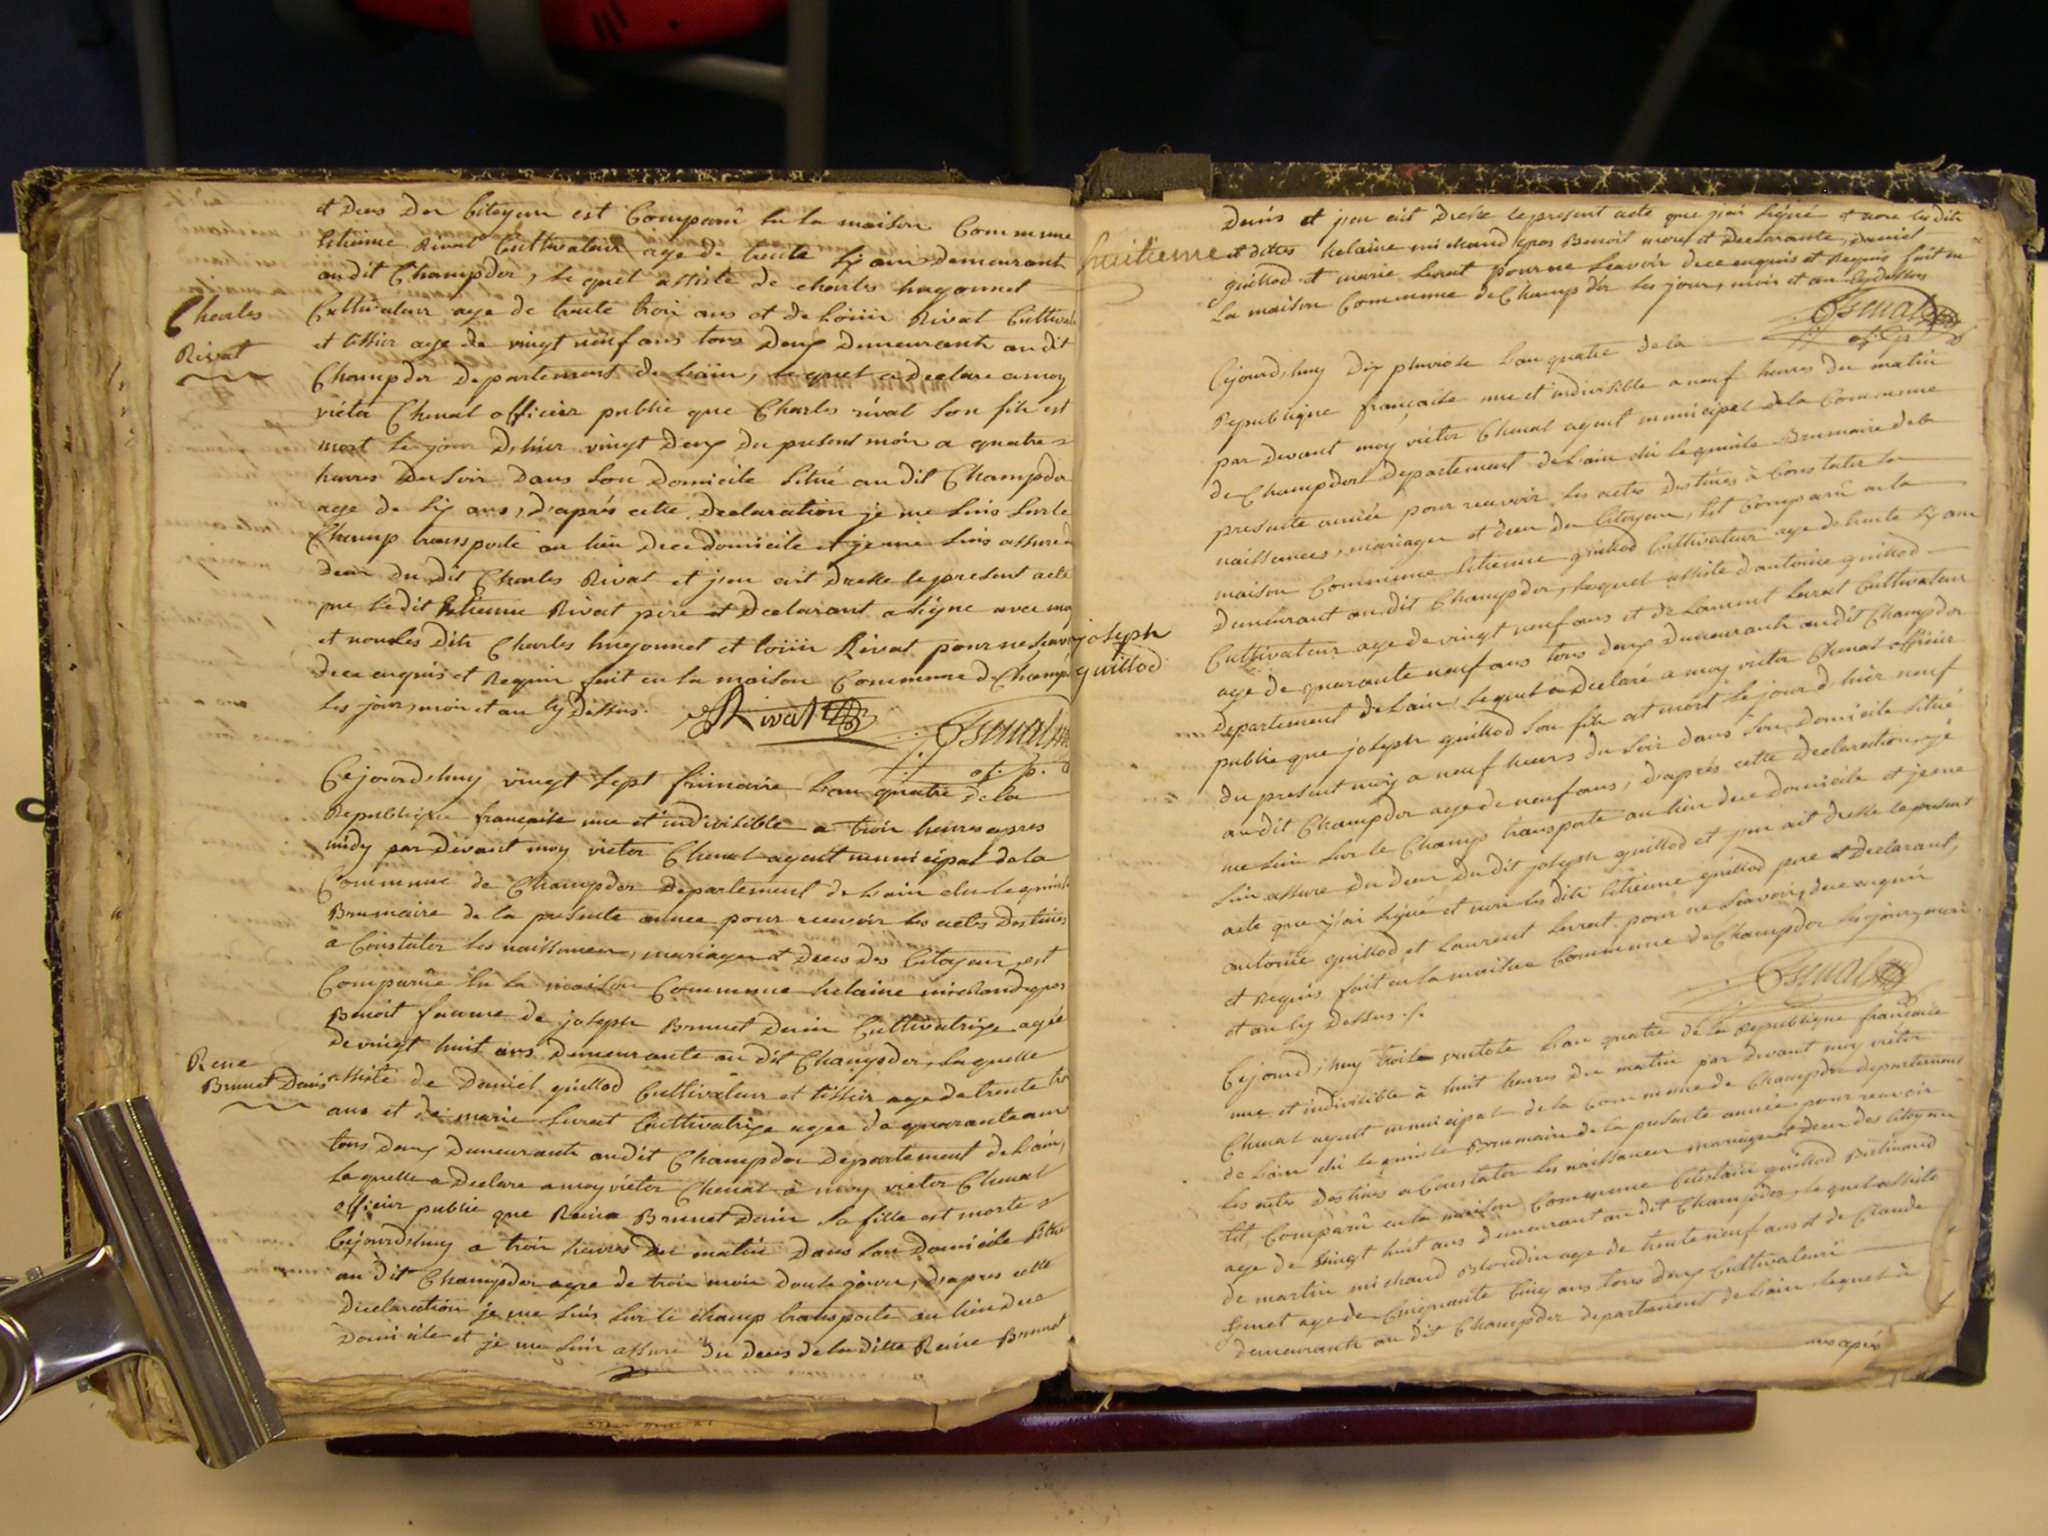 et deces des Citoyens est Comparû en la maison Commune
Etienne Rivat Cultivateur age de trente six ans demeurant
audit Champdor, lequel assiste de charles hugonnet
Charles
Rivat
Cultivateur age de trente trois ans et de Rivat Cultivat
et tissier age de vingt neuf ans tous deux demeurants audit
Champdor departement de Lain, lequel a declare a moy
victor Chenal officier public que Charles rival son fils est
mort le jour d'hier vingt deux du present mois a quatre
heures du soir dans son domicile situé audit Champdor
age de six ans, d'aprés cette declaration je me suis sur le
Champ transporté au lieu de ce domicile et je me suis assuré du
deces du dit Charles Rivat et j'en ait dresse le present acte
que le dit Etienne Rivat pere et declarant a signe avec moy
et non les dits Charles hugonnet et Rivat pour ne savoir
de ce enquis et requis fait en la maison Commune de Champdor
les jour, mois et an cy dessus.
Rivat
Chenal
of. p.
Cejourdhuy vingt sept frimaire L'an quatre de la
Republique francaise une et indivisible a trois heures apres
midy par devant moy victor Chenal agent municipal de la
Commune de Champdor departement de Lain elu le quinse
Brumaire de la presente annee pour recevoir les actes destines
a Constater les naissances, mariages et deces des Citoyens est
Comparüe en la maison Commune helaine michaud gros
Benoit famme de joseph Brunet denis Cultivatrise agée
de vingt huit ans demeurante au dit Champdor, laquelle
Rene
Brunet Denis
assisté de Daniel guillod Cultivateur et tissier age de trente
ans et de marie Levrat Cultivatrise agee de quarante ans
tous deux demeurants audit Champdor departement de Lain,
laquelle a declare a moy victor Chenal à moy victor Chenal
officier public que Reine Brunet denis sa fille est morte
Cejourdhuy a trois heures du matin dans son domicile situé
au dit Champdor agee de trois mois douse jours, d'apres cette
declaration je me suis sur le champ transporte au lieu de ce
domicile et je me suis assure du deces de la ditte Reine Brunet
denis et j'en ait dresse le present acte que j'ai signé et non les dits
huitieme
et dittes helaine michaud gros Benoit mere et declarante, daniel
guillod et marie Levrat pour ne scavoir de ce enquis et requis fait en
la maison Commune de Champdor les jour, mois et an cy dessus
Chenal
of. p.
Cejourd'huy dix pluviose L'an quatre de la
Republique française une et indivisible a neuf heures du matin
par devant moy victor Chenal agent municipal de la Commune
de Champdor departement de Lain élu le quinse Brumaire de la
presente année pour recevoir les actes destinés à Constater les
naissances, mariages et deces des Citoyens, est Comparû en la
maison Commune Etienne guillod Cultivateur age de trente six ans
demeurant audit Champdor, lequel assiste d'antoine guillod
joseph
guillod
Cultivateur age de vingt neuf ans et de Laurent Levrat Cultivateur
age de quarante neuf ans tous deux demeurants audit Champdor
departement de Lain, lequel a declaré a moy victor Chenal officier
public que joseph guillod son fils est mort le jour d'hier neuf
du present mois a neuf heures du soir dans son domicile situé
audit Champdor age de neuf ans, d'aprés cette declaration, je
me suis sur le Champ transporte au lieu de ce domicile et je me
suis assure du deces du dit joseph guillod et j'en ait dresse le present
acte que j'ai signé et non les dits Etienne guillod pere et declarant,
antoine guillod et Laurent Levrat pour ne scavoir, de ce enquis
et requis fait en la maison Commune de Champdor les jour, mois
et an cy dessus ./.
Chenal
Cejourd'huy troise ventose L'an quatre de la Republique française
une et indivisible à huit heures du matin par devant moy victor
Chenal agent municipal de la Commune de Champdor departement
de Lain élu le quinse Brumaire de la presente année pour recevoir
les actes destinés a Constater les naissances mariages et deces des Citoyens
est Comparû en la maison Commune guillod
age de vingt huit ans demeurant audit Champdor, lequel assiste
de martin michaud Blondin age de trente neuf ans et de Claude
age de Cinquante Cinq ans tous deux Cultivateurs
demeurants au dit Champdor departement de Lain, lequel à